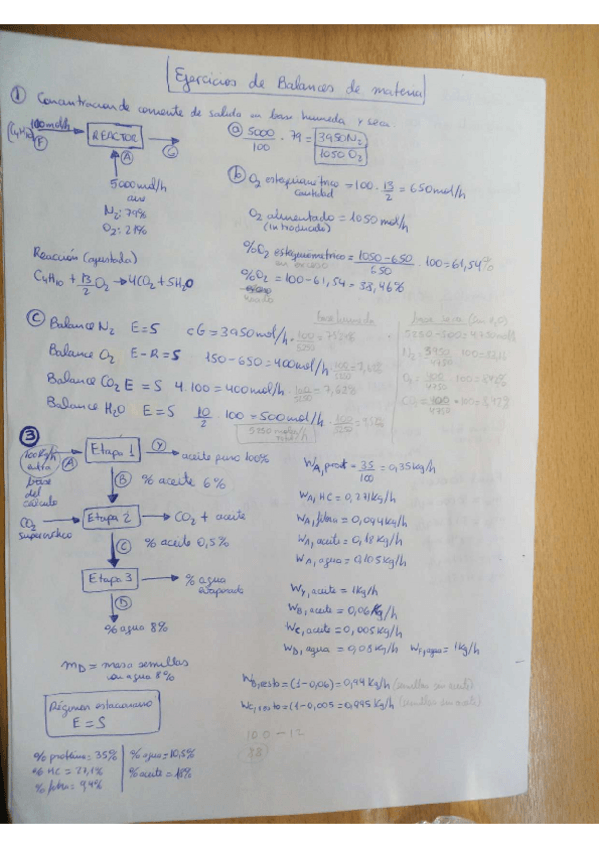 Ejercicios de Balances de materia
① Concentracion de corriente de salida en base humeda y seca.
100mol/h
(C4H10) F
REACTOR
A
G
5000mol/h
aire
N2: 79%
O2: 21%
Reacción (ajustada)
C4H10 + 13/2 O2 → 4CO2 + 5H2O
ⓐ 5000/100 · 79 = 3950 N2
1050 O2
ⓑ O2 estequiométrico = 100 · 13/2 = 650mol/h
cantidad
O2 alimentado = 1050 mol/h
(introducido)
%O2 estequiométrico = 1050-650/650 · 100 = 61,54%
en exceso
%O2 = 100-61,54 = 33,46%
ⓒ Balance N2 E=S G = 3950mol/h · 100/5250
Balance O2 E-R=S 150-650=400mol/h · 100/5250 = 7,62%
Balance CO2 E=S 4·100=400mol/h · 100/5250 = 7,62%
Balance H2O E=S 10/2 · 100 = 500mol/h · 100/5250
base humeda
5250 mol/h
base seca (sin H2O)
5250-500=4750mol/h
N2: 3950/4750 · 100
O2: 400/4750 · 100
CO2: 400/4750 · 100
③
100kg/h
entra
A
base del cálculo
Etapa 1
Y
aceite puro 100%
B
% aceite 6%
CO2 supercrítico
Etapa 2
CO2 + aceite
C
% aceite 0,5%
Etapa 3
% agua evaporado
D
% agua 8%
mD = masa semillas
con agua 8%
Régimen estacionario
E = S
% proteína = 35%
% HC = 27,1%
% fibra = 9,4%
% agua = 10,5%
% aceite = 18%
WA, prot = 35/100 = 0,35kg/h
WA, HC = 0,271kg/h
WA, fibra = 0,094kg/h
WA, aceite = 0,18kg/h
WA, agua = 0,105kg/h
WY, aceite = 1kg/h
WB, aceite = 0,06kg/h
WC, aceite = 0,005kg/h
WD, agua = 0,08kg/h
agua = 1kg/h
WB, resto = (1-0,06) = 0,94 kg/h (semillas sin aceite)
WC, resto = (1-0,005 = 0,995kg/h (semillas sin aceite)
100-12